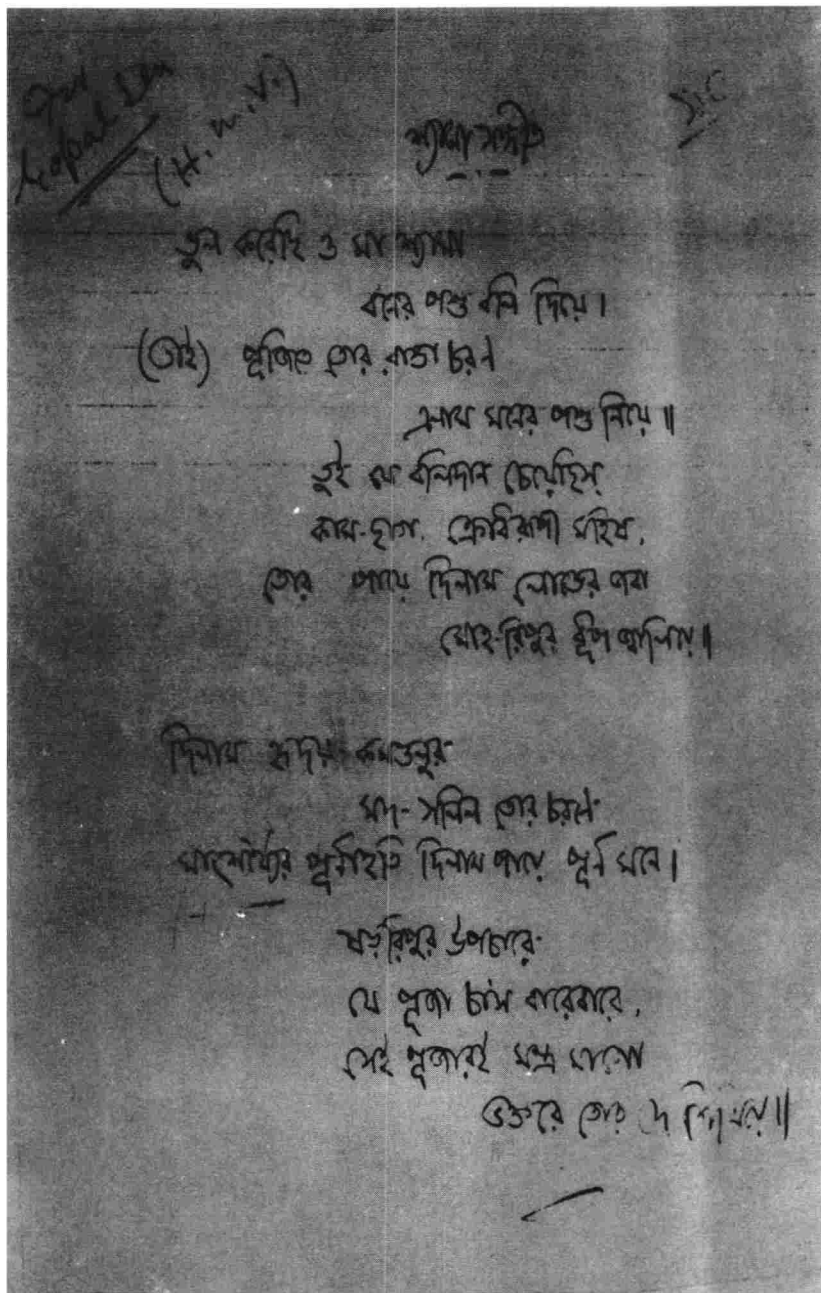 Gopal Sen
(H.M.V.)
শ্যামা সঙ্গীত
ভুল করেছি ও মা শ্যামা
বনের পশু বলি দিয়ে।
(তাই) পূজিতে তোর রাঙা চরণ
এলাম মনের পশু নিয়ে॥
তুই যে বলিদান চেয়েছিস্
কাম-ছাগ, ক্রোধরূপী মহিষ,
তোর পায়ে দিলাম লোভের জবা
মোহ-রিপুর ধূপ জ্বালিয়ে॥
দিলাম হৃদয়-কমণ্ডলুর
মদ-সলিল তোর চরণে
মাৎসর্য্যের পূর্ণাহুতি দিলাম পায়ে পূর্ণ মনে।
ষড়রিপুর উপচারে
যে পূজা চাস বারেবারে,
সেই পূজারই মন্ত্র মাগো
ভক্তরে তোর দে শিখিয়ে॥